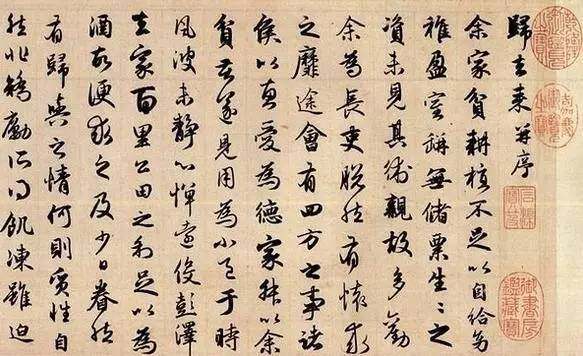 歸去來并序
余家貧耕植不足以自給幼
稚盈室缾無儲粟生生之
資未見其術親故多勸
余為長吏脫然有懷求
之靡途會有四方之事諸
侯以惠愛為德家叔以余
貧苦遂見用為小邑于時
風波未静心憚遠役彭澤
去家百里公田之利足以為
酒故便求之及少日眷然
有歸與之情何則質性自
然非矯勵所得飢凍雖迫
嘉慶御覽之寶
石渠寶笈
御書房鑑藏寶